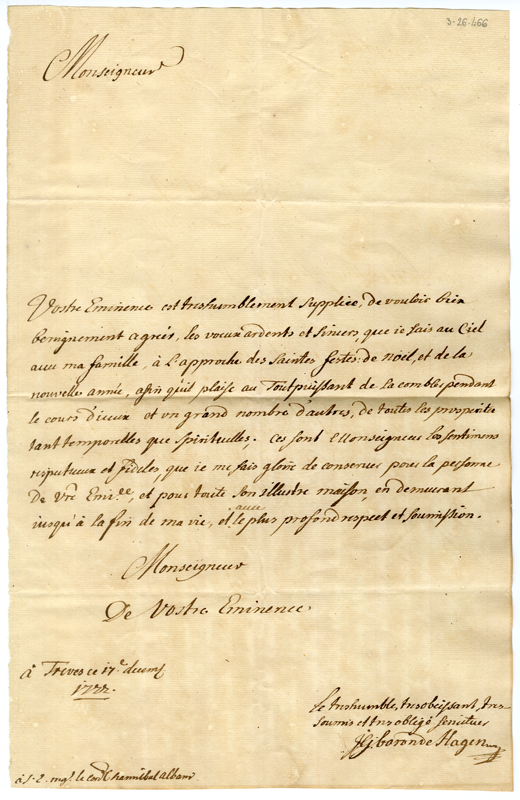 3-26-466
Monseigneur
Vostre Eminence est treshumblement suppliée, de vouloir bien
benignement agreér, les voeux ardents et sinceres, que ie fais au Ciel
avec ma famille, à L'approche des saintes festes: de noël, et de la
nouvelle année, afin qu'il plaise au Toutpuissant de La combler pendant
le cours d'iceux et un grand nombre d'autres, de toutes les prosperites
tant temporelles que spirituelles. Ces sont Monseigneur Les sentimens
respectueux et fideles, que ie me fais gloire de conserver pour la personne
De Vre Emi.ce, et pour toute son illustre maison, en demeurant
iusqu'à la fin de ma vie, avec le plus profond respect et soumission.
Monseigneur
De Vostre Eminence
à Treves ce 17e decemb
Le treshumble, tresobeissant, tres
soumis et tres obligé serviteur
baron de Hagen
à S. E. mgr. le card. hannibal albani